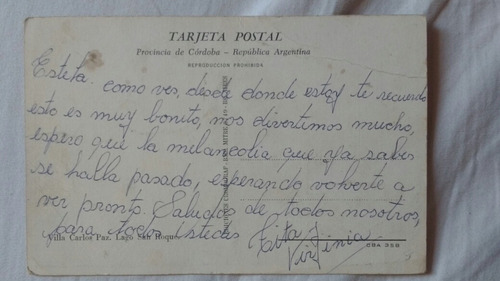 TARJETA POSTAL
Provincia de Córdoba - República Argentina
REPRODUCCION PROHIBIDA
Estela. como ves, desde donde estoy te recuerdo
esto es muy bonito, nos divertimos mucho,
espero que la melancolia que ya sabes
se halla pasado, esperando volverte a
ver pronto. Saludos de todos nosotros,
para todos Ustedes
Tita
Virginia
Villa Carlos Paz. Lago San Roque
CBA 358